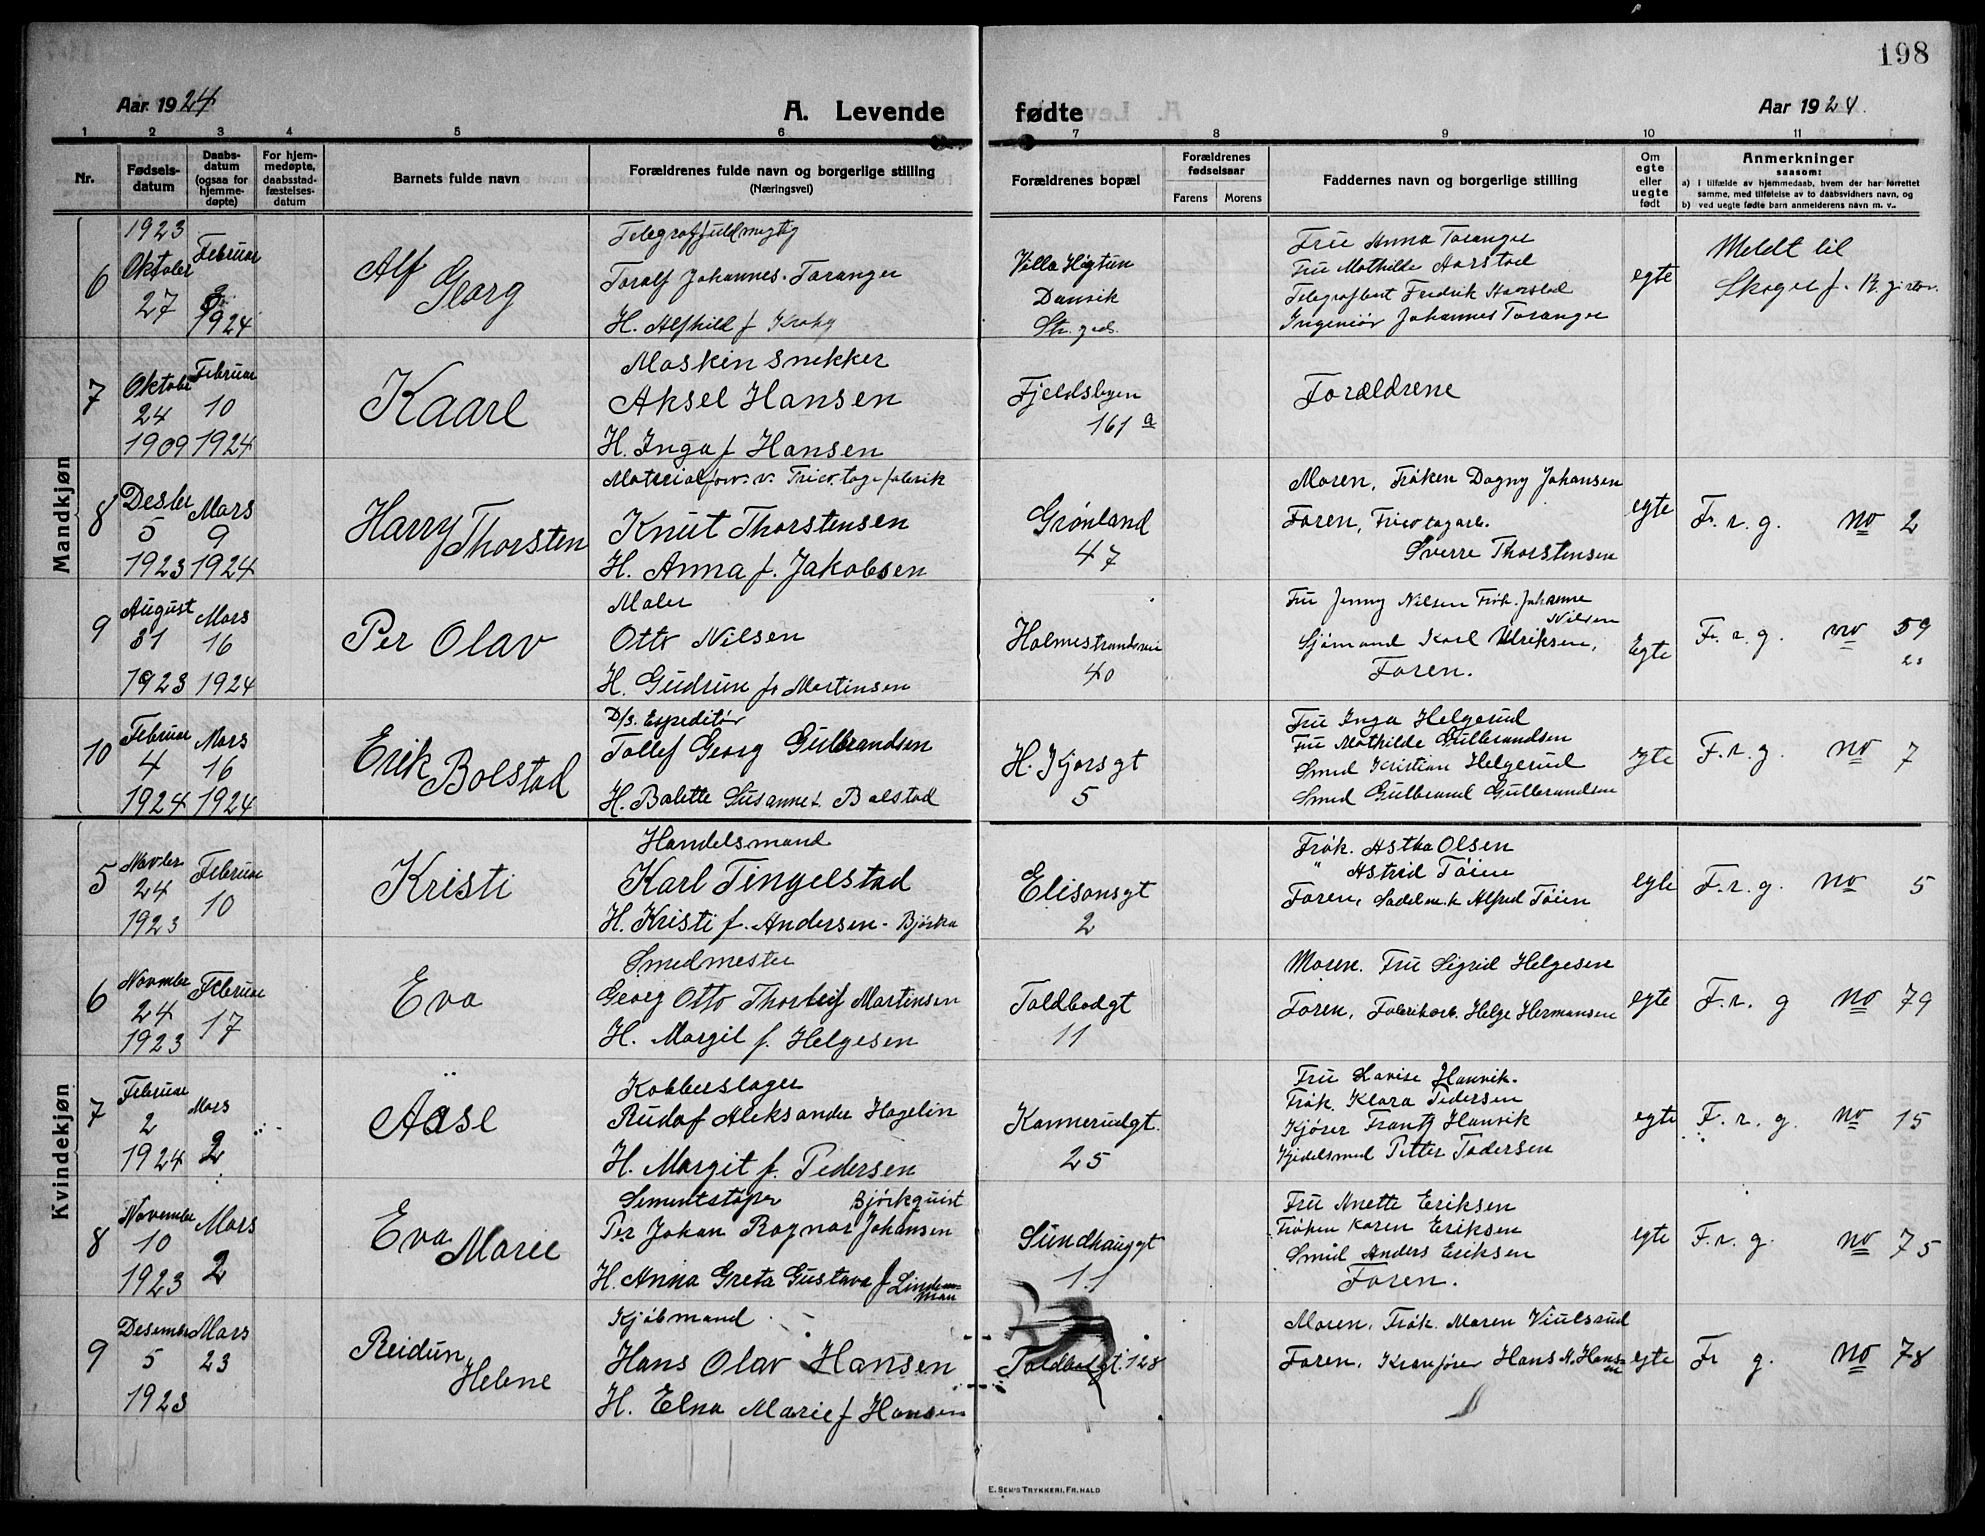 198
Aar 1924
A. Levende
fødte
Aar 1924.
1 2 3 4 5 6 7 8 9 10 11
Nr.
Fødsels-
datum
Daabs-
datum
(ogsaa for
hjemme-
døpte)
For hjem-
medøpte,
daabsstad-
fæstelses-
datum
Barnets fulde navn
Forældrenes fulde navn og borgerlige stilling
(Næringsvei)
Forældrenes bopæl
Forældrenes
fødselsaar
Farens Morens
Faddernes navn og borgerlige stilling
Om
egte
eller
uegte
født
Anmerkninger
saasom:
a) I tilfælde av hjemmedaab, hvem der har forrettet
samme, med tilføielse av to daabsvidners navn, og
b) ved uegte fødte barn anmelderens navn m. v..
Mandkjøn
6
1923
Oktober
27
Februar
3
1924
Alf
Georg
Telegraffuldmegtig
Toralf Johannes Taranger
H. Alfhild f. Krohg
Villa Høgtun
Danvik
Str. gods.
Fru Anna Taranger
Fru Mathilde Aarstad
Telegrafbest Fredrik Aarstad
Ingeniør Johannes Taranger
egte
Meldt til
Skoger f.
7
Oktober
24
1909
Februar
10
1924
Kaarl
Maskin snekker
Aksel Hansen
H. Inga f Hansen
Fjeldsbyen
161 a
Forældrene
8
Desber
5
1923
Mars
9
1924
Harry
Thorsten
Materialforv. v. Tricotagefabrik
Knut Thorstensen
H. Anna f. Jakobsen
Grønland
47
Moren, Frøken Dagny Johansen
Faren, Tricotagarb.
Sverre Thorstensen
egte
F. r. g. no 2
9
August
31
1923
Mars
16
1924
Per Olav
Maler
Otto Nilsen
H. Gudrun f. Martinsen
Holmestrandsvei
40
Fru Jenny Nilsen Frøk. Johanne
Nilsen
Sjømand Karl Ulriksen,
Faren.
Egte
F. r. g. no 59
10
Februar
4
1924
Mars
16
1924
Erik
Bolstad
D/s. Espeditør
Tollef Georg Gulbrandsen
H. Bolette Susanne f. Bolstad
H. Kjørsgt
5
Fru Inga Helgerud
Fru Mathilde Gulbrandsen
Smed Kristian Helgerud
Smed Gulbrand Gulbrandsen
egte
F. r. g. no 7
Kvindekjøn
5
Novber
24
1923
Februar
10
Kristi
Handelsmand
Karl Tingelstad
H. Kristi f. Andersen - Bjørka
Elisonsgt
2
Frøk. Astha Olsen
" Astrid Tøien
Faren, Alfred Tøien
egte
F. r. g. no 5
6
November
24
1923
Februar
17
Eva
Smedmester
Georg Otto Thorleif Martinsen
H. Margit f. Helgesen
Toldbodgt
11
Moren. Fru Sigrid Helgesen
Faren, Fabrikarb. Helge Hermansen
egte
F. r. g no 79
7
Februar
2
1924
Mars
2
Aase
Kobberslager
Rudof Aleksander Hagelin
H. Margit f. Pedersen
Konnerudgt.
25
Fru Lovise Hanvik.
Frøk. Klara Pedersen
Kjører Frantz Hanvik
Kjedelsmed Petter Pedersen
egte
F. r. g. no 15
8
November
10
1923
Mars
2
Eva
Marie
Sementstøper Bjørkquist
Per Johan Ragnar Johansen
H. Anna Greta Gustava f Lindeman
man
Sundhauggt
11
Fru Anette Eriksen
Frøken Karen Eriksen
Smed Anders Eriksen
Faren.
egte
F. r. g. no 75
9
Desember
5
1923
Mars
23
Reidun
Helene
Kjøbmand
Hans Olav Hansen
H. Elna Marie f Hansen
Toldbodgt 128
Moren, Frøk. Maren Viulsrud
Faren, Kranfører Hans M. Hansen
egte
Fr g. no 78
E. SEM'S TRYKKERI, FR.HALD